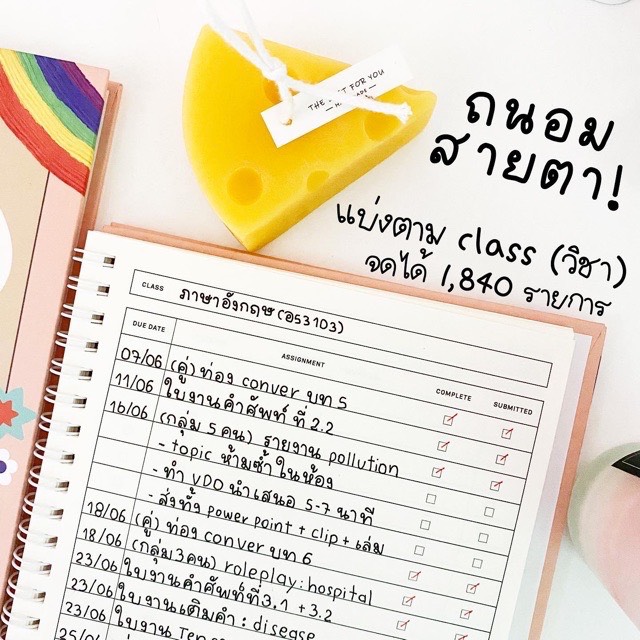 THE FOR YOU
ถนอม
สายตา!
แบ่งตาม class (วิชา)
จดได้ 1,840 รายการ
CLASS ภาษาอังกฤษ (อ53103)
DUE DATE ASSIGNMENT COMPLETE SUBMITTED
07/06 (คู่) ท่อง conver บท 5
11/06 ใบงานคำศัพท์ ที่ 2.2
16/06 (กลุ่ม 5 คน) รายงาน pollution
- topic ห้ามซ้ำในห้อง
- ทำ VDO นำเสนอ 5-7 นาที
- ส่งทั้ง power point + clip + เล่ม
18/06 (คู่) ท่อง conver บท 6
18/06 (กลุ่ม 3 คน) roleplay: hospital
23/06 ใบงานคำศัพท์ที่ 3.1 + 3.2
23/06 ใบงานเติมคำ : disease
23/06 ใบงาน
25/06